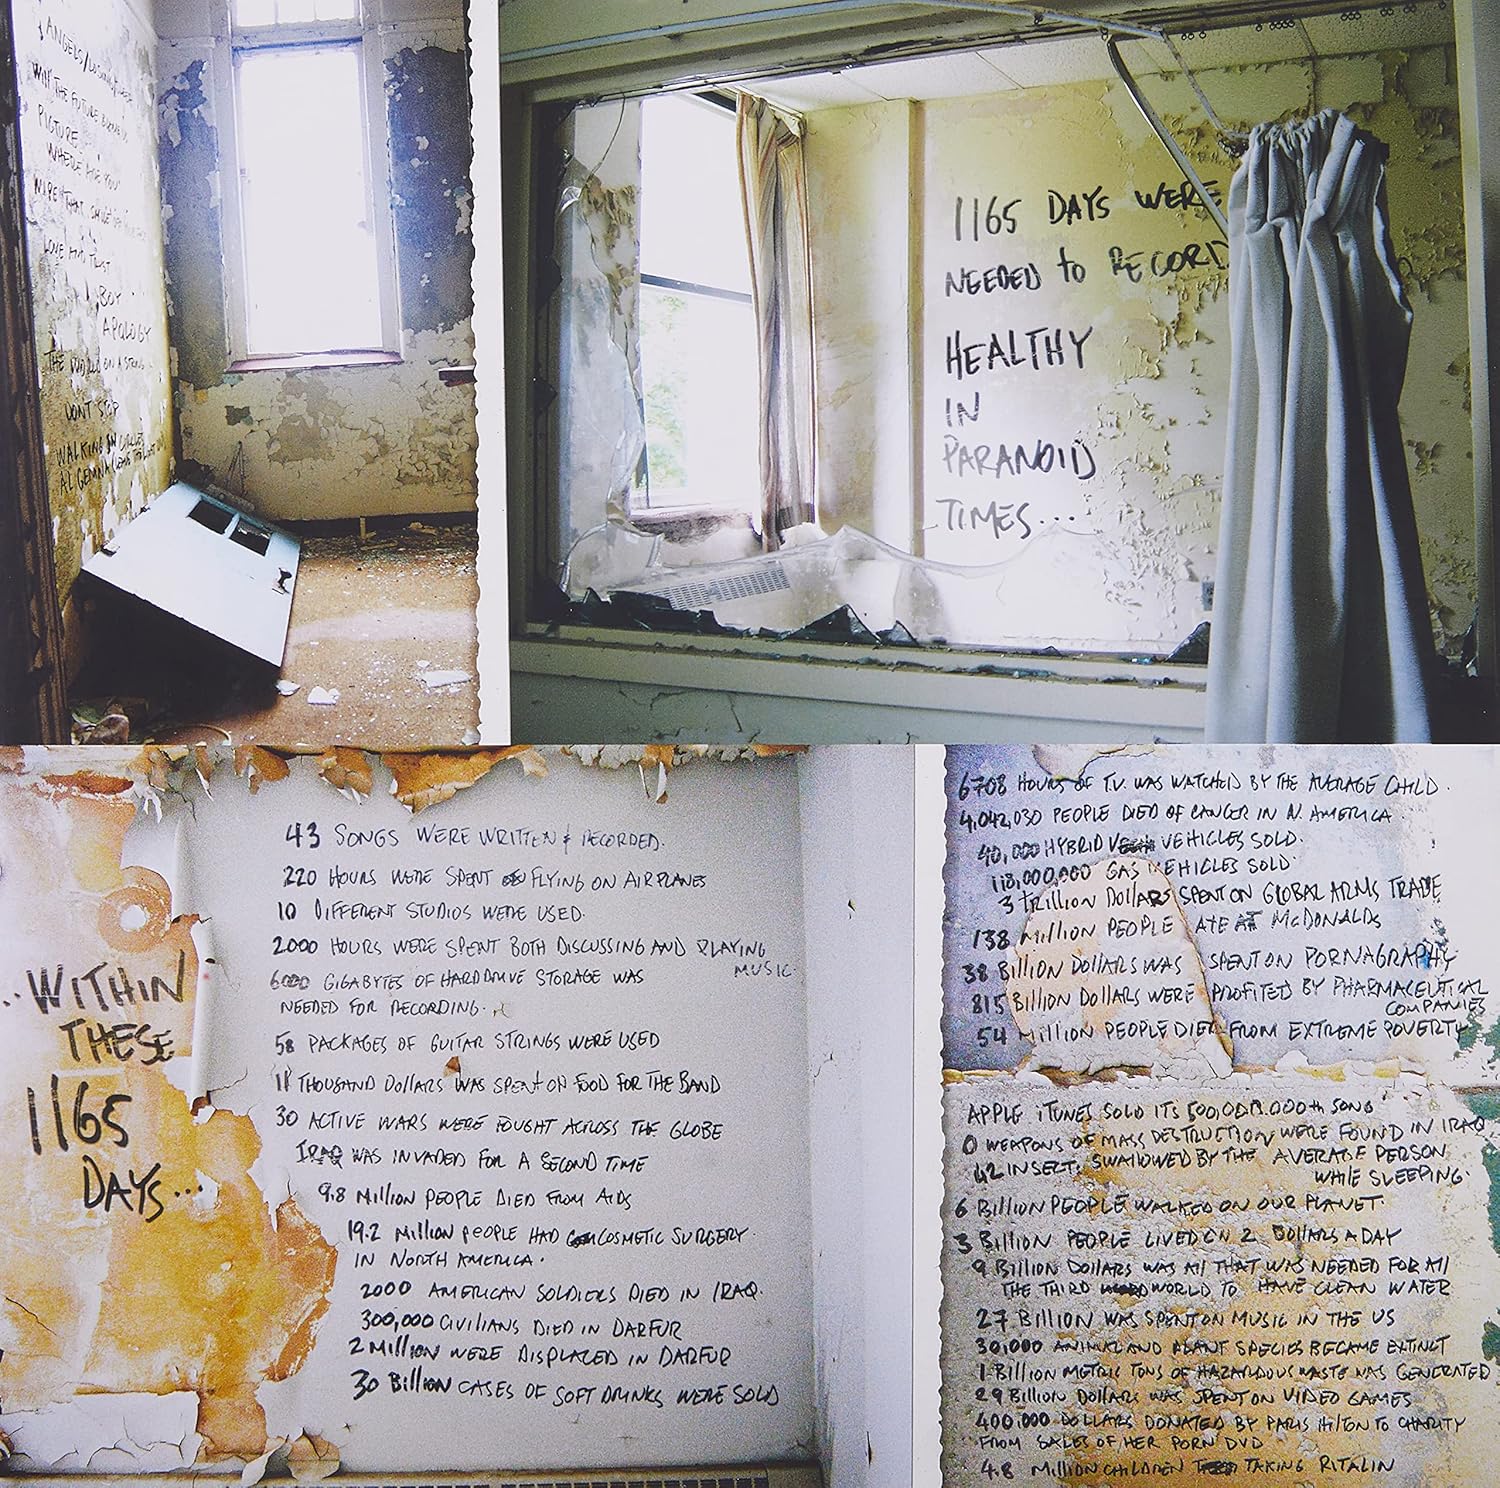 ANGELS/LOSING/SLEEP
WILL THE FUTURE BLAME US
PICTURE
WHERE ARE YOU
WIPE THAT SMILE OFF YOUR FACE
LOVE AND TRUST
BOY
APOLOGY
THE WORLD ON A STRING
DON'T STOP
WALKING IN CIRCLES
AL GENINA (LEAVE THE LIGHT ON)
1165 DAYS WERE
NEEDED to RECORD
HEALTHY
IN
PARANOID
TIMES...
..WITHIN
THESE
1165
DAYS...
43 SONGS WERE WRITTEN & RECORDED.
220 HOURS WERE SPENT FLYING ON AIRPLANES
10 DIFFERENT STUDIOS WERE USED.
2000 HOURS WERE SPENT BOTH DISCUSSING AND PLAYING
MUSIC.
6000 GIGABYTES OF HARDDRIVE STORAGE WAS
NEEDED FOR RECORDING.
58 PACKAGES OF GUITAR STRINGS WERE USED
11 THOUSAND DOllARS WAS SPENT ON FOOD FOR THE BAND
30 ACTIVE WARS WERE FOUGHT ACROSS THE GLOBE
IRAQ WAS INVADED FOR A SECOND TIME
9.8 MIllION PEOPLE DIED FROM AIDS
19.2 MIllION PEOPLE HAD COSMETIC SURGERY.
IN NORTH AMERICA.
2000 AMERICAN SOLDIERS DIED IN IRAQ.
300,000 CIVILIANS DIED IN DARFUR
2 MIllION WERE DISPLACED IN DARFUR
30 BIllION CASES OF SOFT DRINKS WERE SOLD
6708 HOURS OF T.V. WAS WATCHED BY THE AVERAGE CHILD.
4,042,030 PEOPLE DIED OF CANCER IN N. AMERICA.
40,000 HYBRID VEHICLES SOLD.
118,000,000 GAS VEHICLES SOLD.
3 TRIllION DOllARS SPENT ON GLOBAL ARMS TRADE
138 MIllION PEOPLE ATE AT McDONALDS
38 BIllION DOllARS WAS SPENT ON PORNAGRAPHY
815 BIllION DOllARS WERE PROFITED BY PHARMACEUTICAL
COMPANIES
54 MIllION PEOPLE DIED FROM EXTREME POVERTY
APPLE iTUNES SOLD ITS 500,000,000th SONG
0 WEAPONS OF MASS DESTRUCTION WERE FOUND IN IRAQ
42 INSECTS SWALLOWED BY THE AVERAGE PERSON
WHILE SLEEPING.
6 BIllION PEOPLE WALKED ON OUR PLANET.
3 BIllION PEOPLE LIVED ON 2 DOLLARS A DAY
9 BIllION DOLLARS WAS All THAT WAS NEEDED FOR All
THE THIRD WORLD TO HAVE CLEAN WATER
27 BIllION WAS SPENT ON MUSIC IN THE US
30,000 ANIMAL AND PLANT SPECIES BECAME EXTINCT
1 BIllION METRIC TONS OF HAZARDOUS WASTE WAS GENERATED
29 BIllION DOLLARS WAS SPENT ON VIDEO GAMES
400,000 DOLLARS DONATED BY PARIS HILTON TO CHARITY
FROM SALES OF HER PORN DVD
4.8 MIllION CHILDREN TAKING RITALIN